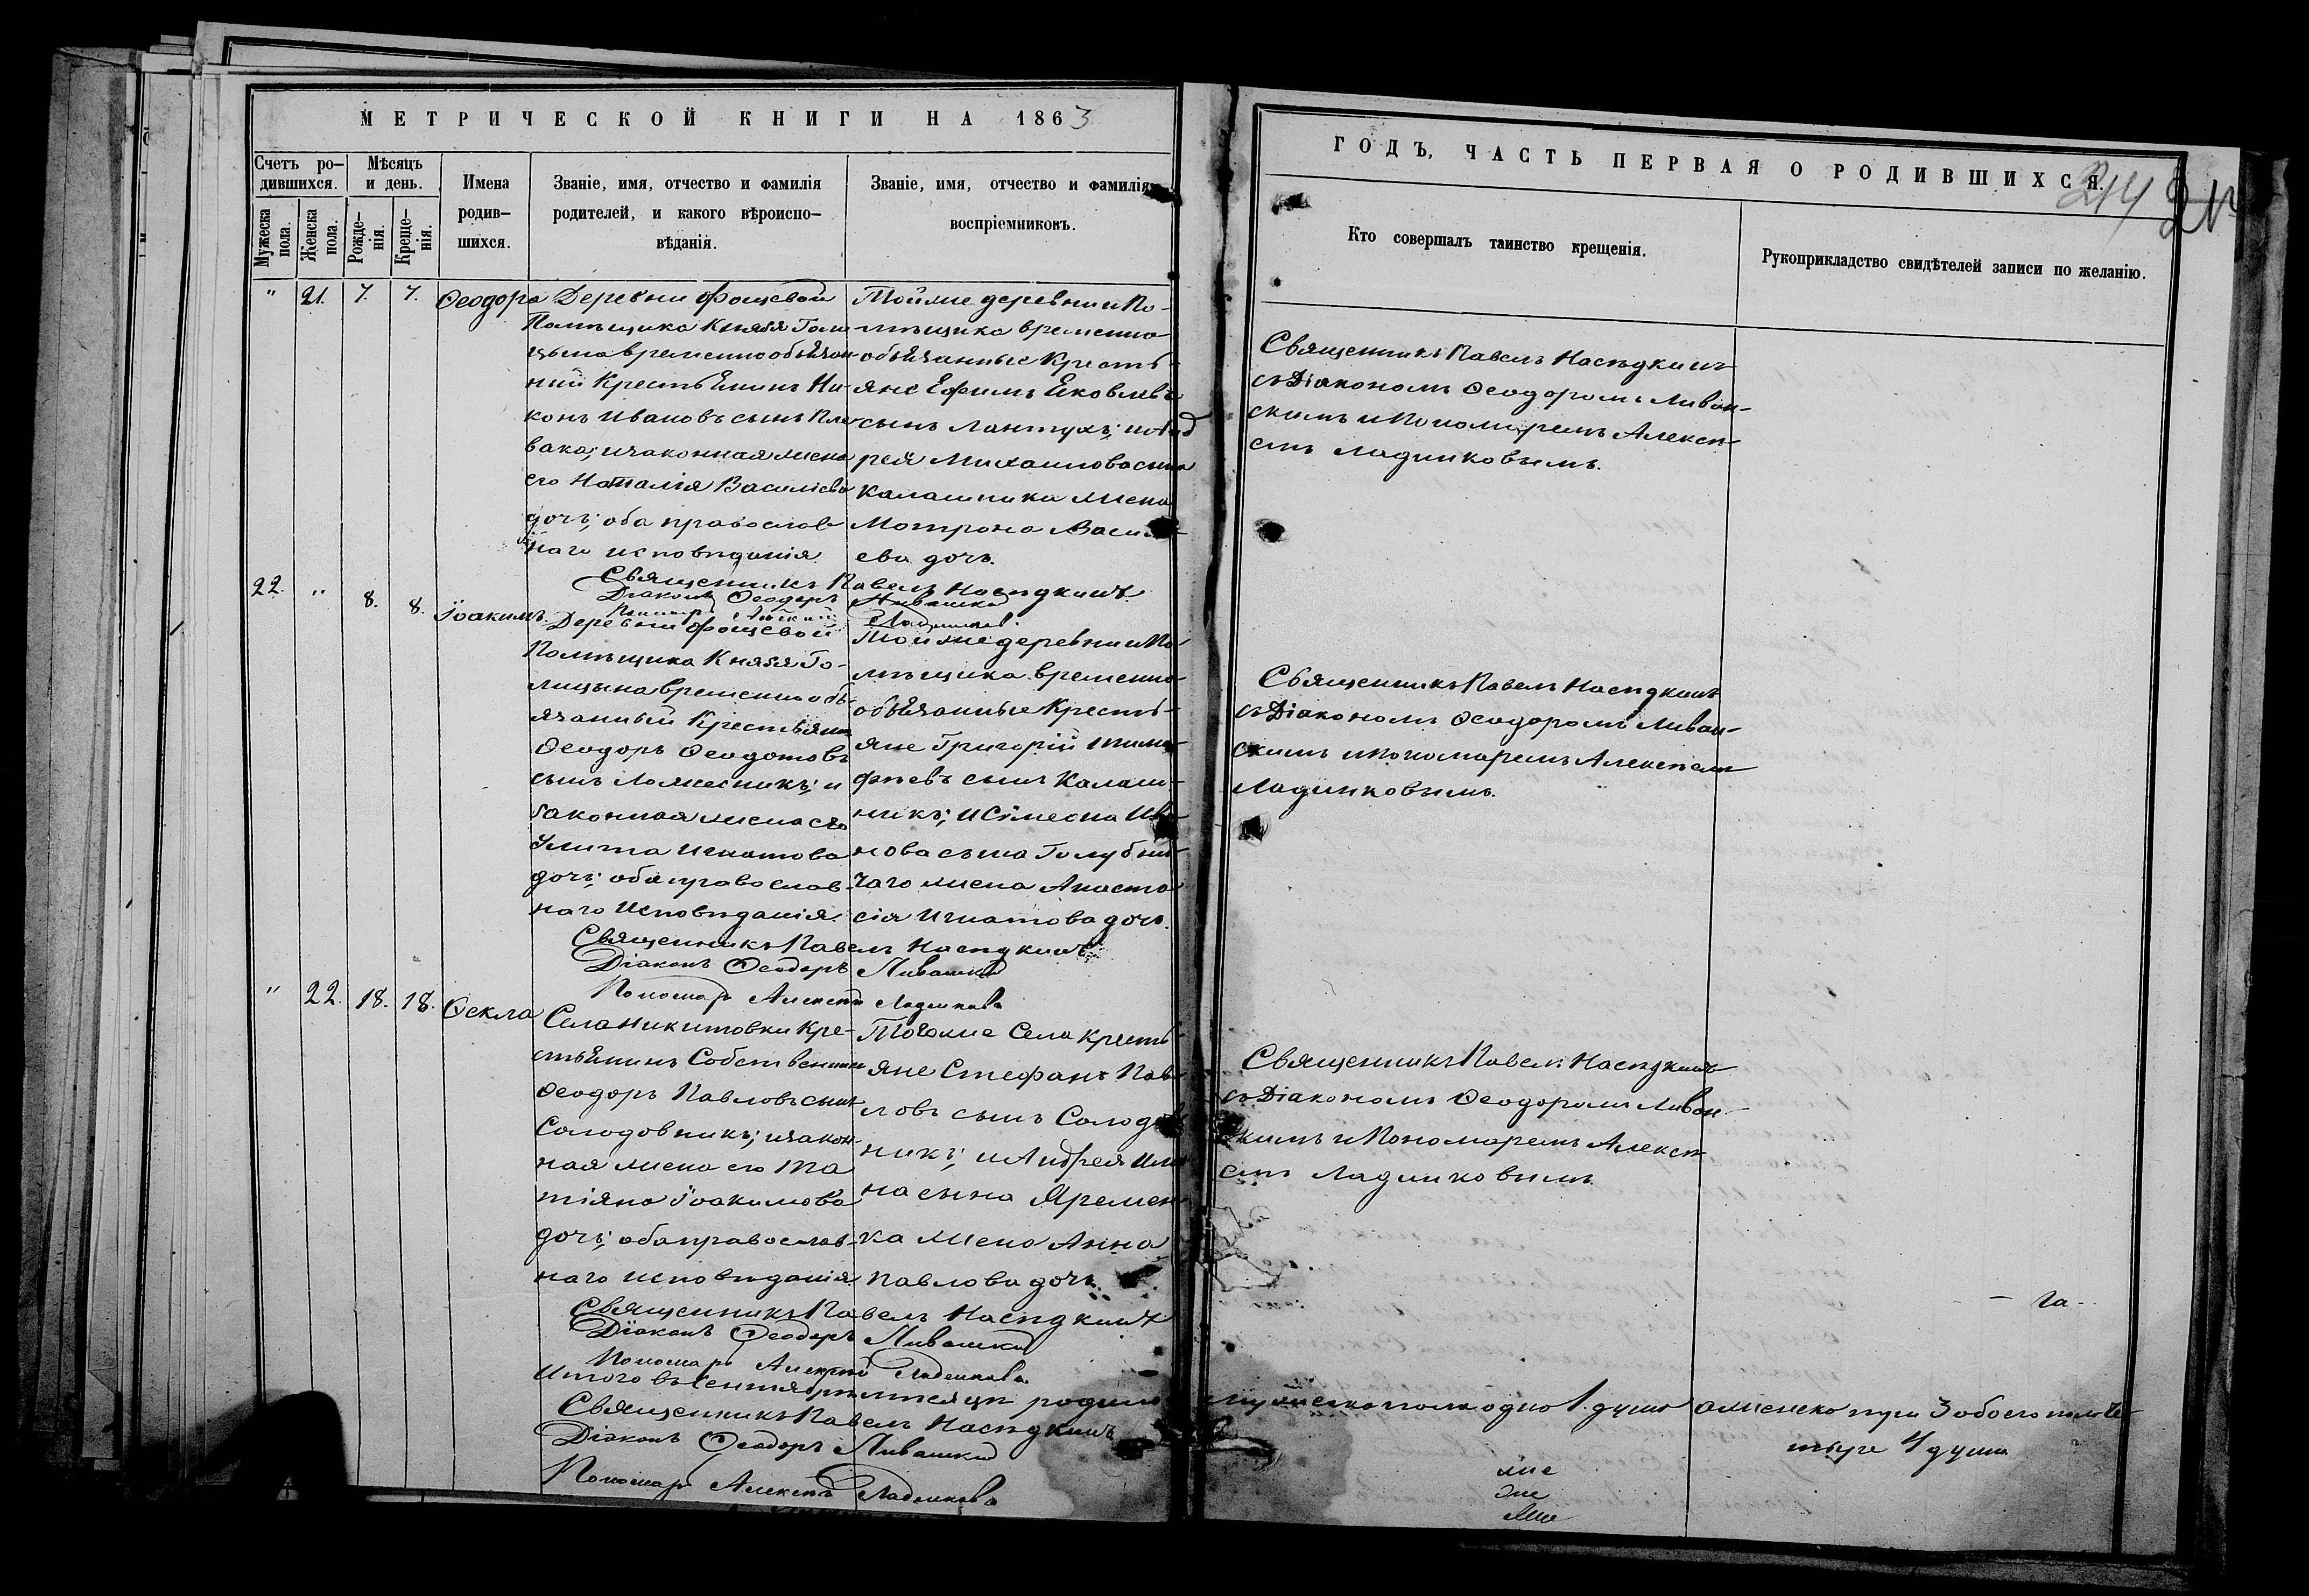 МЕТРИЧЕСКОЙ КНИГИ НА 1863
ГОДЪ, ЧАСТЬ ПЕРВАЯ О РОДИВШИХСЯ.
214
Счетъ ро-
дившихся.
Мѣсяцъ
и день.
Мужеска
пола.
Женска
пола.
Рожде-
нія.
Креще-
нія.
Имена
родив-
шихся.
Званіе, имя, отчество и фамилія
родителей, и какого вѣроиспо-
вѣданія.
Званіе, имя, отчество и фамилія
воспріемниковъ.
Кто совершалъ таинство крещенія.
Рукоприкладство свидѣтелей записи по желанію.
" 21. 7. 7. Ѳеодора
Деревни Фощевой
Помѣщика Князя Голи-
цына временнообязан-
ный Крестьянинъ Ни-
конъ Ивановъ сынъ Пле-
вака; и законная жена
его Наталія Василіева
дочь; оба православ-
наго исповѣданія
Тойже деревни и По-
мѣщика временно-
обязанные Кресть-
яне Ефимъ Яковлевъ
сынъ Лантухъ; и Анд
рея Михаилова сына
Калашника жена
Матрона Васил-
ева дочь.
Священникъ Павелъ Насѣдкинъ
съ Діакономъ Ѳеодоромъ Ливан-
скимъ и Пономаремъ Алексѣ-
емъ Ладинковымъ.
Священникъ Павелъ Насѣдкинъ
Діаконъ Ѳеодоръ Ливанскій
22. " 8. 8. Іоакимъ
Деревни Фощевой
Помѣщика Князя Го-
лицына временнооб-
язанный Крестьянинъ
Ѳеодоръ Ѳеодотовъ
сынъ Ложешникъ; и
законная жена его
Улита Игнатова
дочь; оба православ-
наго Исповѣданія
Тойже деревни и По-
мѣщика временно-
обязанные Кресть-
яне Григорій Тимо-
фѣевъ сынъ Калаш-
никъ; и Сімеона Ива-
нова сына Голубни-
чаго жена Анаста-
сія Игнатова дочь.
Священникъ Павелъ Насѣдкинъ
съ Діакономъ Ѳеодоромъ Ливан-
скимъ и Пономаремъ Алексѣемъ
Ладинковымъ.
Священникъ Павелъ Насѣдкинъ
Діаконъ Ѳеодоръ Ливанскій
Пономарь Алексѣй Ладинковъ
" 22. 18. 18. Ѳекла
Села Никитовки Кре-
стьянинъ Собственникъ
Ѳеодоръ Павловъ сынъ
Солодовникъ; и закон-
ная жена его Та
тіяна Іоакимова
дочь; оба православ-
наго исповѣданія
Тогоже Села Кресть-
яне Стефанъ Пав-
ловъ сынъ Солодов-
никъ; и Андрея
на сына Яремен-
ка жена Анна
Павлова дочь.
Священникъ Павелъ Насѣдкинъ
съ Діакономъ Ѳеодоромъ Ливан-
скимъ и Пономаремъ Алексѣ
емъ Ладинковымъ
Священникъ Павелъ Насѣдкинъ
Діаконъ Ѳеодоръ Ливанскій
Пономарь Алексѣй Ладинковъ
Итого въ Сентябрѣ мѣсяцѣ родилось мужеска пола одна 1. душа а женска три 3 обоего пола че-
тыре 4 души
Священникъ Павелъ Насѣдкинъ
Діаконъ Ѳеодоръ Ливанскій
Пономарь Алексѣй Ладинковъ